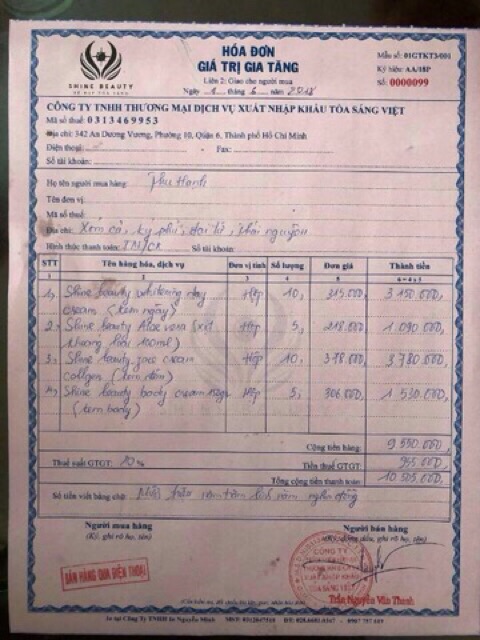 HÓA ĐƠN
GIÁ TRỊ GIA TĂNG
Liên 2: Giao cho người mua
Ngày 1 tháng 6 năm 2018
Mẫu số: 01GTKT3/001
Ký hiệu: AA/18P
Số: 0000099
SHINE BEAUTY
CÔNG TY TNHH THƯƠNG MẠI DỊCH VỤ XUẤT NHẬP KHẨU TỎA SÁNG VIỆT
Mã số thuế: 0313469953
Địa chỉ: 342 An Dương Vương, Phường 10, Quận 6, Thành phố Hồ Chí Minh
Điện thoại: Fax:
Số tài khoản:
Họ tên người mua hàng: Thu Hạnh
Tên đơn vị:
Mã số thuế:
Địa chỉ: Xóm Cả, Ký Phú, Đại Từ, Thái Nguyên
Hình thức thanh toán: TM/CK Số tài khoản:
STT Tên hàng hóa, dịch vụ Đơn vị tính Số lượng Đơn giá Thành tiền
1 2 3 4 5 6=4x5
1, Shine beauty whitening day Hộp 10, 315.000, 3 150.000,
cream (kem ngày)
2, Shine beauty Aloe vera Hộp 5, 218.000, 1 090.000,
100ml)
3, Shine beauty face cream Hộp 10, 378.000, 3 780.000,
collgen (kem đêm)
4, Shine beauty body cream Hộp 5, 306.000, 1 530.000,
(kem body)
Cộng tiền hàng: 9.550.000,
Thuế suất GTGT: 10% Tiền thuế GTGT: 955.000,
Tổng cộng tiền thanh toán: 10 505.000,
Số tiền viết bằng chữ: Mười triệu năm trăm lẻ năm nghìn đồng
Người mua hàng Người bán hàng
(Ký, ghi rõ họ, tên) (Ký, đóng dấu, ghi rõ họ, tên)
BÁN HÀNG QUA ĐIỆN THOẠI
CÔNG TY
XUẤT NHẬP KHẨU
TỎA SÁNG VIỆT
Trần Nguyễn Văn Thanh
In tại Công Ty TNHH In Nguyễn Minh